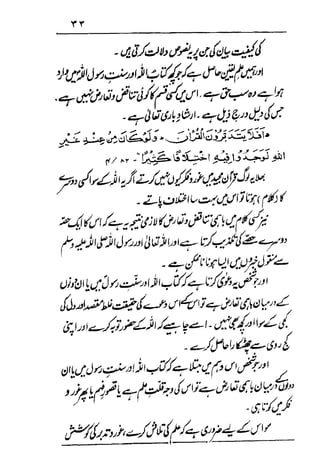 ۳۳
کی کیفیت بیان کی جن پر یہ نصوص دلالت کرتی ہیں۔
اور ہمیں علم یقین حاصل ہے کہ جو کچھ کتاب اللہ اور سنت رسول اللہ میں وارد
ہوا ہے وہ سب حق ہے۔ اس میں کسی قسم کا کوئی تناقض و تعارض نہیں ہے۔
جس کی دلیل درج ذیل ہے۔ ارشاد باری تعالیٰ ہے۔
أَفَلَا يَتَدَبَّرُونَ الْقُرْآنَ وَلَوْ كَانَ مِنْ عِنْدِ غَيْرِ
اللهِ لَوَجَدُوا فِيهِ اخْتِلَافًا كَثِيرًا ۴/۸۲
بھلا یہ لوگ قرآن مجید میں غور و فکر کیوں نہیں کرتے اگر یہ اللہ کے سوا کسی دوسرے
کا (کلام) ہوتا تو اس میں بہت سا اختلاف پاتے۔
نیز کسی کلام میں باہمی تناقض و تعارض کا لازمی نتیجہ یہ ہے کہ اس کا ایک حصہ
دوسرے حصے کی تکذیب کرتا ہے اور اللہ تعالیٰ اور رسول اللہ صلی اللہ علیہ وسلم
سے منقول خبروں میں ایسا ہونا ناممکن ہے۔
اور جو شخص یہ دعویٰ کرتا ہے کہ کتاب اللہ اور سنت رسول میں یا ان دونوں
کے درمیان باہمی تعارض ہے تو اس کے اس دعوے کی حقیقت غلط مقصد اور دل کی
کجی کے سوا اور کچھ بھی نہیں۔ اسے چاہیے کہ اللہ کے حضور توبہ کرے اور اپنی
کج روی سے چھٹکارا حاصل کرے۔
اور جو شخص اس وہم میں مبتلا ہے کہ کتاب اللہ اور سنت رسول میں یا ان
دونوں کے درمیان باہمی تعارض ہے تو اس کی وجہ قلت علم ہے یا قصور فہم یا پھر غور و
فکر میں کوتاہی۔
سو اس کے لیے ضروری ہے کہ علم کی تلاش کرے، غور و تدبر کی کوشش